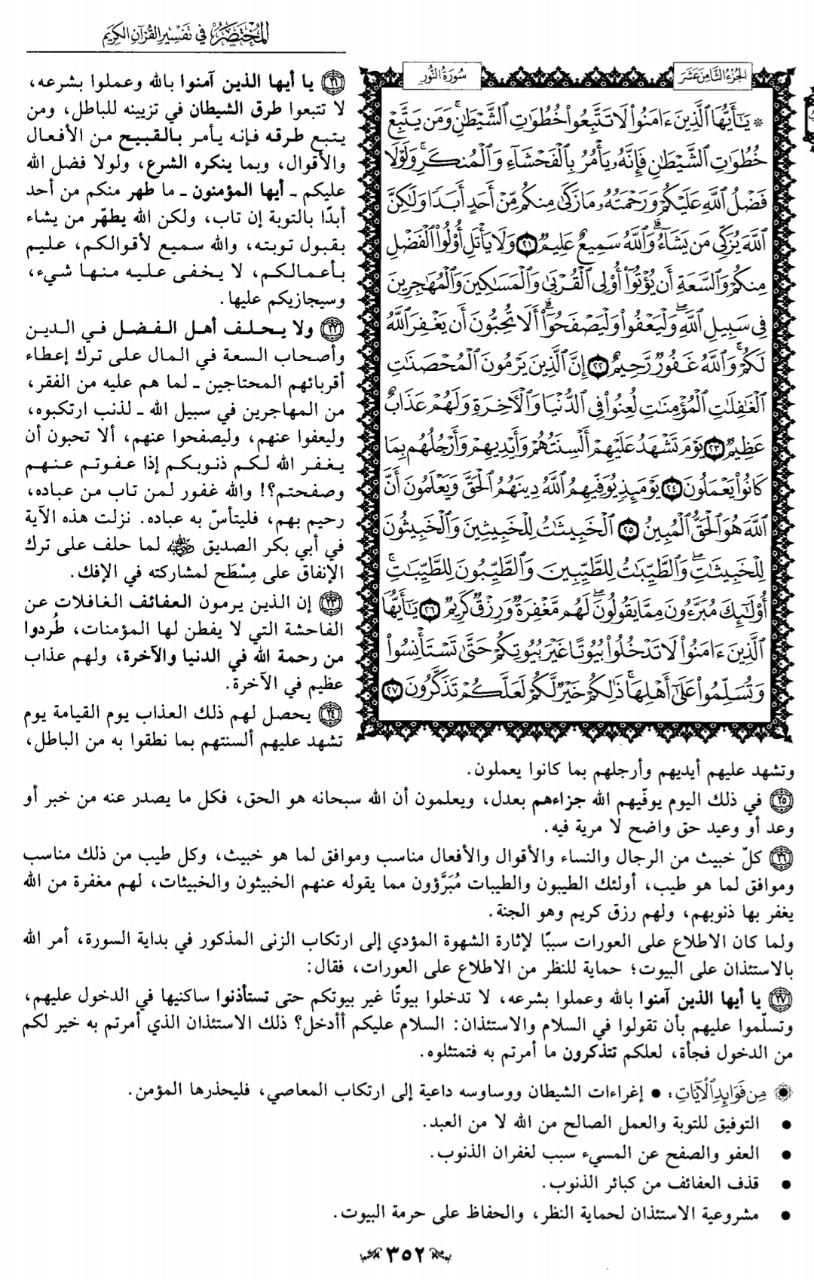 المختصر في تفسير القرآن الكريم
الجزء الثامن عشر
سورة النور
* يَٰٓأَيُّهَا ٱلَّذِينَ ءَامَنُواْ لَا تَتَّبِعُواْ خُطُوَٰتِ ٱلشَّيۡطَٰنِۚ وَمَن يَتَّبِعۡ
خُطُوَٰتِ ٱلشَّيۡطَٰنِ فَإِنَّهُۥ يَأۡمُرُ بِٱلۡفَحۡشَآءِ وَٱلۡمُنكَرِۚ وَلَوۡلَا
فَضۡلُ ٱللَّهِ عَلَيۡكُمۡ وَرَحۡمَتُهُۥ مَا زَكَىٰ مِنكُم مِّنۡ أَحَدٍ أَبَدٗا وَلَٰكِنَّ
ٱللَّهَ يُزَكِّي مَن يَشَآءُۗ وَٱللَّهُ سَمِيعٌ عَلِيمٞ ٢١ وَلَا يَأۡتَلِ أُوْلُواْ ٱلۡفَضۡلِ
مِنكُمۡ وَٱلسَّعَةِ أَن يُؤۡتُوٓاْ أُوْلِي ٱلۡقُرۡبَىٰ وَٱلۡمَسَٰكِينَ وَٱلۡمُهَٰجِرِينَ
فِي سَبِيلِ ٱللَّهِۖ وَلۡيَعۡفُواْ وَلۡيَصۡفَحُوٓاْۗ أَلَا تُحِبُّونَ أَن يَغۡفِرَ ٱللَّهُ
لَكُمۡۚ وَٱللَّهُ غَفُورٞ رَّحِيمٌ ٢٢ إِنَّ ٱلَّذِينَ يَرۡمُونَ ٱلۡمُحۡصَنَٰتِ
ٱلۡغَٰفِلَٰتِ ٱلۡمُؤۡمِنَٰتِ لُعِنُواْ فِي ٱلدُّنۡيَا وَٱلۡأٓخِرَةِ وَلَهُمۡ عَذَابٌ
عَظِيمٞ ٢٣ يَوۡمَ تَشۡهَدُ عَلَيۡهِمۡ أَلۡسِنَتُهُمۡ وَأَيۡدِيهِمۡ وَأَرۡجُلُهُم بِمَا
كَانُواْ يَعۡمَلُونَ ٢٤ يَوۡمَئِذٖ يُوَفِّيهِمُ ٱللَّهُ دِينَهُمُ ٱلۡحَقَّ وَيَعۡلَمُونَ أَنَّ
ٱللَّهَ هُوَ ٱلۡحَقُّ ٱلۡمُبِينُ ٢٥ ٱلۡخَبِيثَٰتُ لِلۡخَبِيثِينَ وَٱلۡخَبِيثُونَ
لِلۡخَبِيثَٰتِۖ وَٱلطَّيِّبَٰتُ لِلطَّيِّبِينَ وَٱلطَّيِّبُونَ لِلطَّيِّبَٰتِۚ
أُوْلَٰٓئِكَ مُبَرَّءُونَ مِمَّا يَقُولُونَۖ لَهُم مَّغۡفِرَةٞ وَرِزۡقٞ كَرِيمٞ ٢٦ يَٰٓأَيُّهَا
ٱلَّذِينَ ءَامَنُواْ لَا تَدۡخُلُواْ بُيُوتًا غَيۡرَ بُيُوتِكُمۡ حَتَّىٰ تَسۡتَأۡنِسُواْ
وَتُسَلِّمُواْ عَلَىٰٓ أَهۡلِهَاۚ ذَٰلِكُمۡ خَيۡرٞ لَّكُمۡ لَعَلَّكُمۡ تَذَكَّرُونَ ٢٧
٢١ يا أيها الذين آمنوا بالله وعملوا بشرعه،
لا تتبعوا طرق الشيطان في تزيينه للباطل، ومن
يتبع طرقه فإنه يأمر بالقبيح من الأفعال
والأقوال، وبما ينكره الشرع، ولولا فضل الله
عليكم ـ أيها المؤمنون ـ ما طهر منكم من أحد
أبدًا بالتوبة إن تاب، ولكن الله يطهّر من يشاء
بقبول توبته، والله سميع لأقوالكم، عليم
بأعمالكم، لا يخفى عليه منها شيء،
وسيجازيكم عليها.
٢٢ ولا يحلف أهل الفضل في الدين
وأصحاب السعة في المال على ترك إعطاء
أقربائهم المحتاجين ـ لما هم عليه من الفقر،
من المهاجرين في سبيل الله ـ لذنب ارتكبوه،
وليعفوا عنهم، وليصفحوا عنهم، ألا تحبون أن
يغفر الله لكم ذنوبكم إذا عفوتم عنهم
وصفحتم؟! والله غفور لمن تاب من عباده،
رحيم بهم، فليتأسّ به عباده. نزلت هذه الآية
في أبي بكر الصديق رضي الله عنه لما حلف على ترك
الإنفاق على مِسْطَح لمشاركته في الإفك.
٢٣ إن الذين يرمون العفائف الغافلات عن
الفاحشة التي لا يفطن لها المؤمنات، طُردوا
من رحمة الله في الدنيا والآخرة، ولهم عذاب
عظيم في الآخرة.
٢٤ يحصل لهم ذلك العذاب يوم القيامة يوم
تشهد عليهم ألسنتهم بما نطقوا به من الباطل،
وتشهد عليهم أيديهم وأرجلهم بما كانوا يعملون.
٢٥ في ذلك اليوم يوفّيهم الله جزاءهم بعدل، ويعلمون أن الله سبحانه هو الحق، فكل ما يصدر عنه من خبر أو
وعد أو وعيد حق واضح لا مرية فيه.
٢٦ كلّ خبيث من الرجال والنساء والأقوال والأفعال مناسب وموافق لما هو خبيث، وكل طيب من ذلك مناسب
وموافق لما هو طيب، أولئك الطيبون والطيبات مُبَرَّؤون مما يقوله عنهم الخبيثون والخبيثات، لهم مغفرة من الله
يغفر بها ذنوبهم، ولهم رزق كريم وهو الجنة.
ولما كان الاطلاع على العورات سببًا لإثارة الشهوة المؤدي إلى ارتكاب الزنى المذكور في بداية السورة، أمر الله
بالاستئذان على البيوت؛ حماية للنظر من الاطلاع على العورات، فقال:
٢٧ يا أيها الذين آمنوا بالله وعملوا بشرعه، لا تدخلوا بيوتًا غير بيوتكم حتى تستأذنوا ساكنيها في الدخول عليهم،
وتسلّموا عليهم بأن تقولوا في السلام والاستئذان: السلام عليكم أأدخل؟ ذلك الاستئذان الذي أمرتم به خير لكم
من الدخول فجأة، لعلكم تتذكرون ما أمرتم به فتمتثلوه.
من فوائد الآيات: • إغراءات الشيطان ووساوسه داعية إلى ارتكاب المعاصي، فليحذرها المؤمن.
• التوفيق للتوبة والعمل الصالح من الله لا من العبد.
• العفو والصفح عن المسيء سبب لغفران الذنوب.
• قذف العفائف من كبائر الذنوب.
• مشروعية الاستئذان لحماية النظر، والحفاظ على حرمة البيوت.
٣٥٢